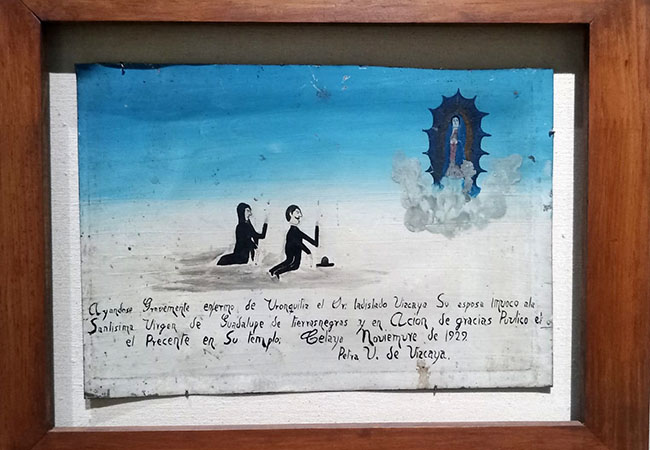 Ayandose Gravemente enfermo de Vronquitiz el Sr. ladislado Vizcaya Su esposa imunco ala
Santisima Virgen de Guadalupe de tierrasnegras y en Acion de gracias Puvlico el
el Precente en Su templo. Celaya Noviemvre de 1929.
Petra V. de Vizcaya.